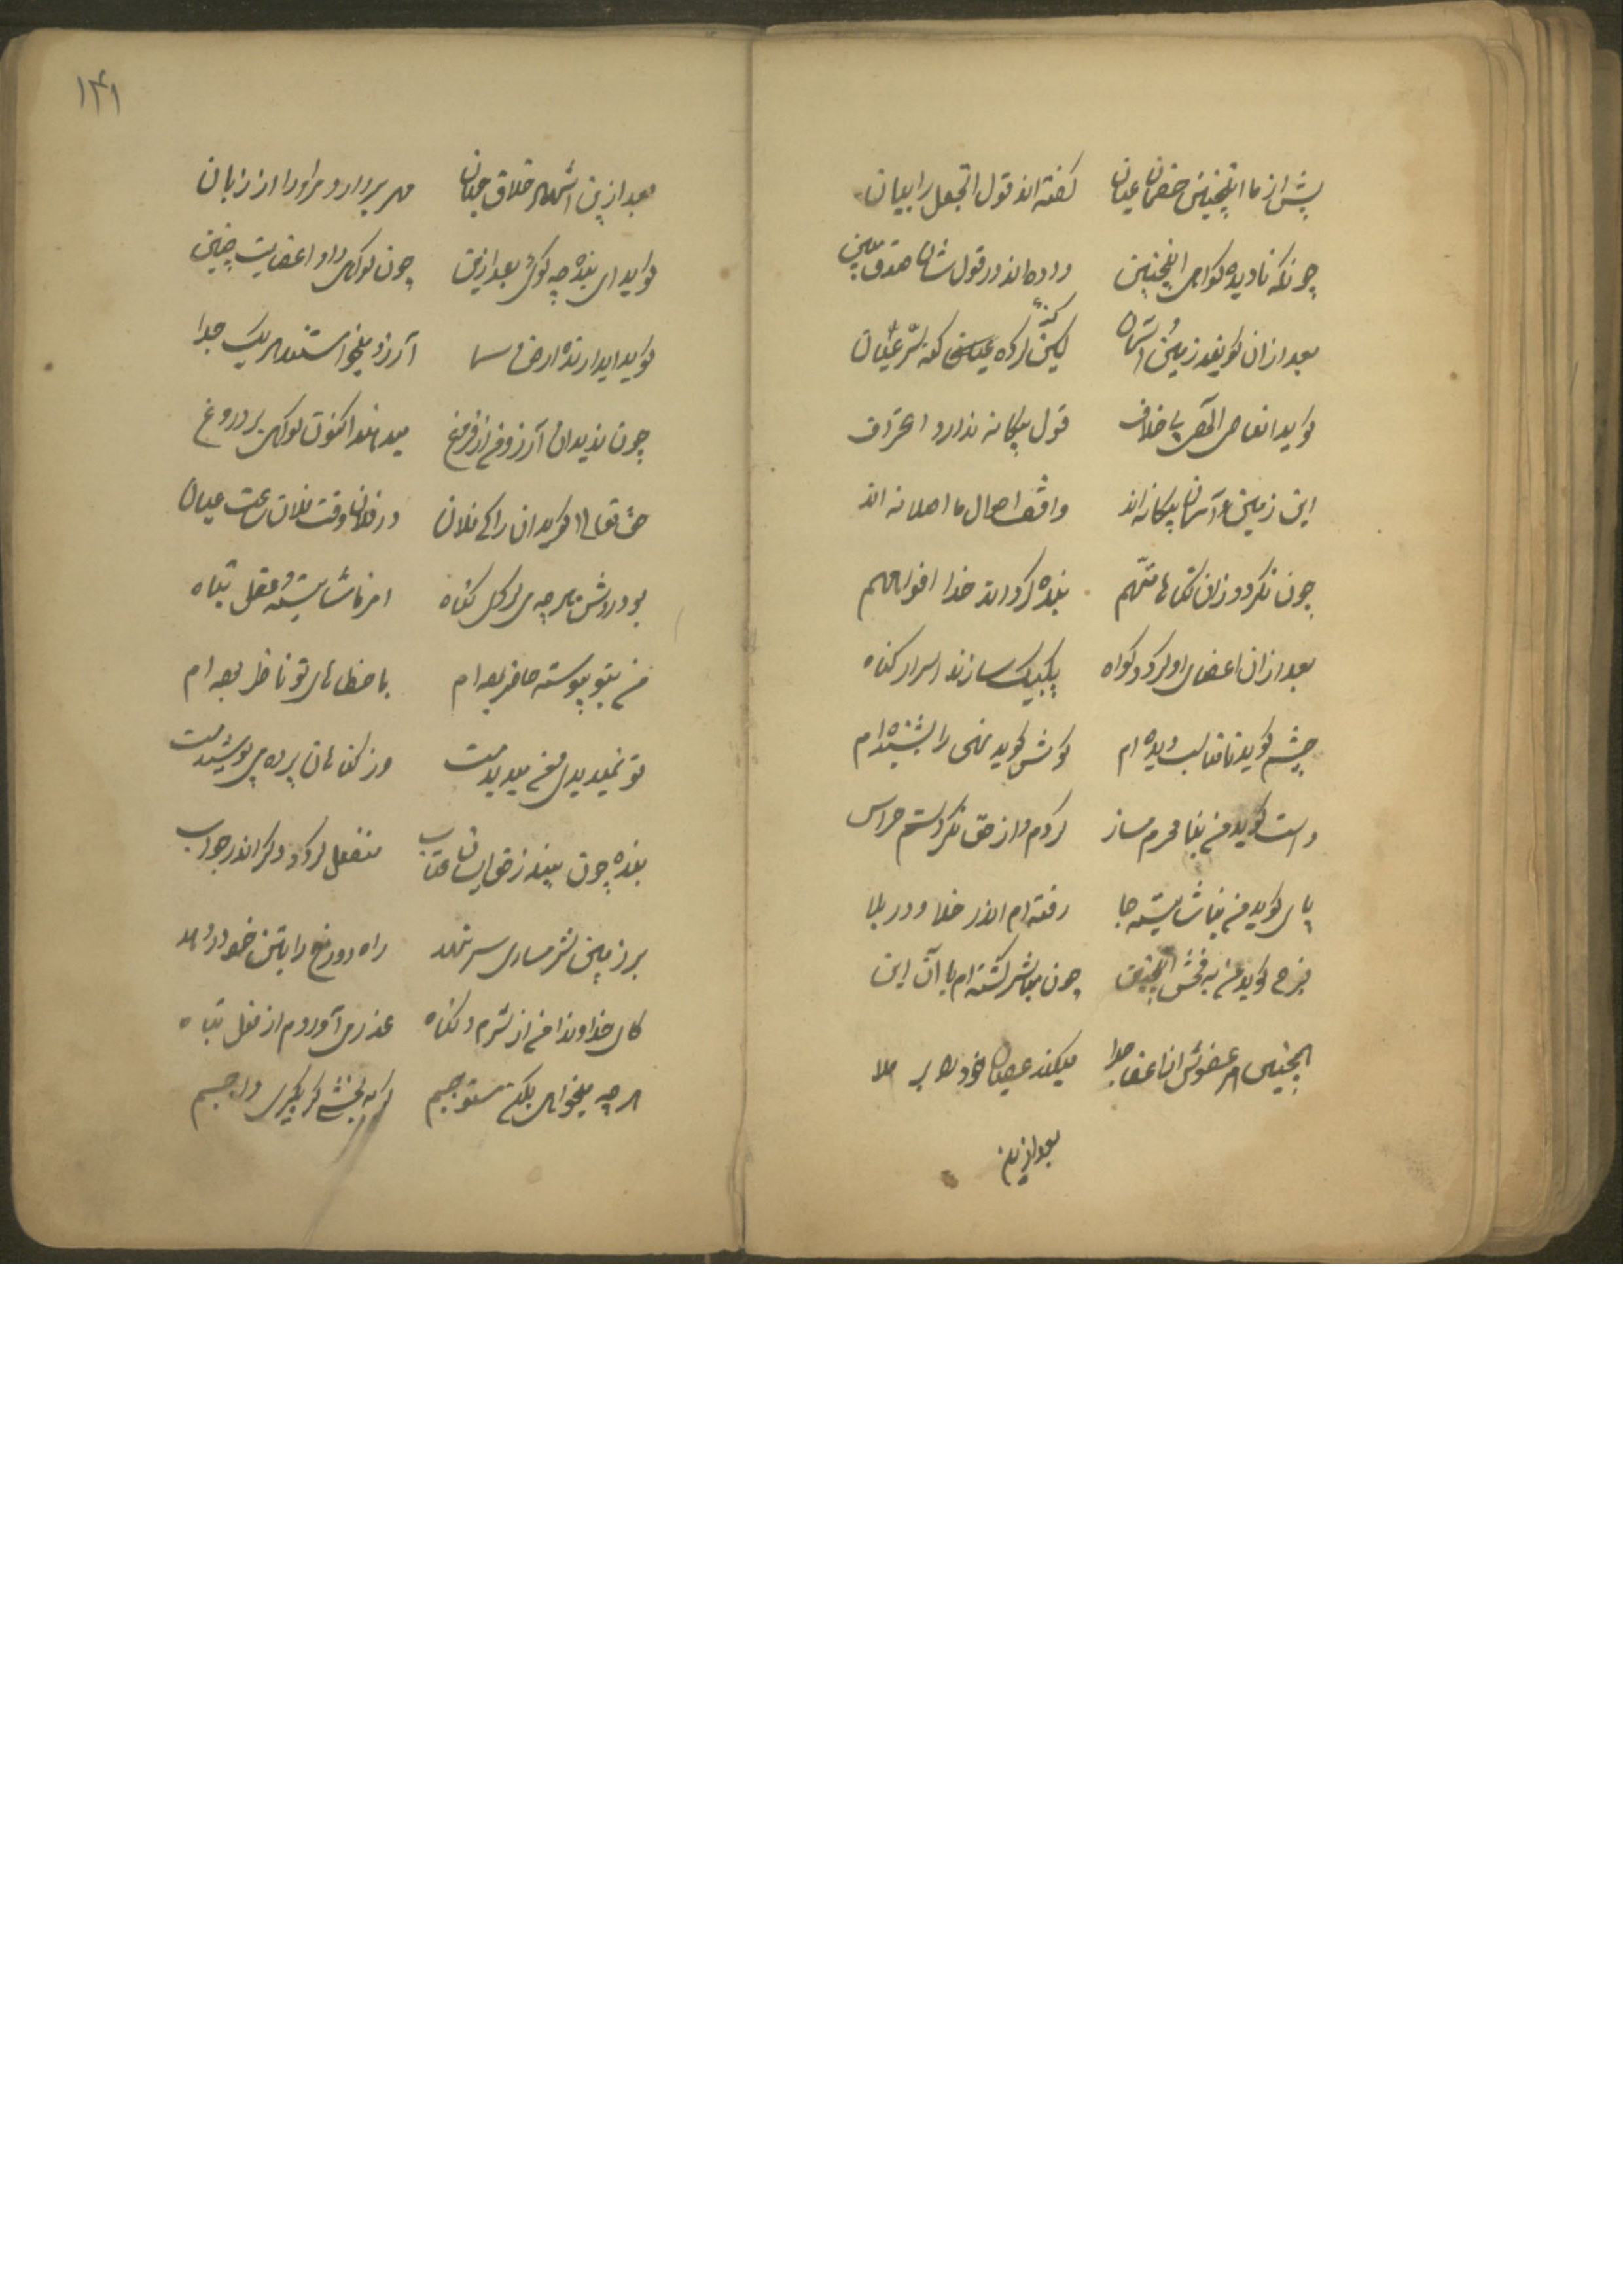 ۱۴۱
پیش از ما اینچنین خصمان عیان گفته‌اند قول اتجعل را بیان
چونکه نادیده گواهی اینچنین داده‌اند در قول شان صدق مبین
بعد ازان گویند زمین و آسمان لیکن کرده گنه سر عیان
گوید اینها هر آنچه بی خلاف قول بیگانه ندارد اعتراف
این زمین و آسمان بیگانه‌اند واقف احوال ما اصلا نه‌اند
چون نکردد زان گناها متهم بنده گرداند خدا افواههم
بعد ازان اعضای او گردد گواه یکبیک سازند اسرار گناه
چشم گوید نامناسب دیده‌ام گوش گوید نهی را بشنیده‌ام
دست گوید من بنا محرم مساز کردم و از حق نکردستم هراس
پای گوید من بناشایسته جا رفته‌ام اندر خلا و در بلا
فرج گوید من به فحش اینچنین چون مباشر گشته‌ام با آن و این
اینچنین هر عضوش از اعضا جدا میکند عصیان خود را بر ملا
بعد ازین
بعد ازین آن خلاق جهان مهر بردارد مر او را از زبان
گوید ای بنده چه گوئی بعد ازین چون گواهی داد اعضایت چنین
گوید ای دارنده ارض و سما آرزو میخواستند هر یک جدا
چون ندیدند آرزو من از فروغ میدهند اکنون گواهی بر دروغ
حق تعالی گوید آن را کای فلان در فلان وقت فلان ساعت عیان
بود روشن هرچه می‌کردی گناه امر ناشایسته و فعل تباه
من بتو پیوسته حاضر بوده‌ام با خطاهای تو ناظر بوده‌ام
تو نمیدیدی و من میدیدمت وز گناهان پرده می‌پوشیدمت
بنده چون بیند ز حق اینسان عتاب منفعل گردد دگر اندر جواب
بر زمین شرمساری سر نهد راه دوزخ را بتن خود در دهد
کای خداوندا من از شرم گناه عذر می‌آوردم از فعل تباه
هر چه میخواهی بکن مستوجبم گر به بخشی گر بگیری واجبم